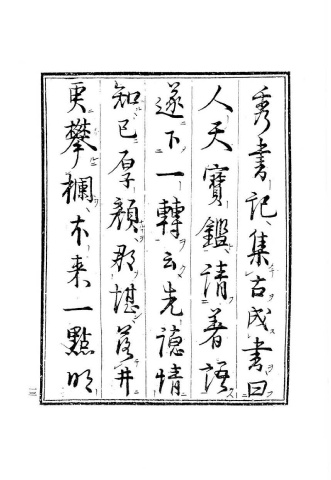 秀書記集古成書曰
人天寶鑑請著語
遂下一轉云先德情
知已厚顏那堪落井
更攀欄本来一點明